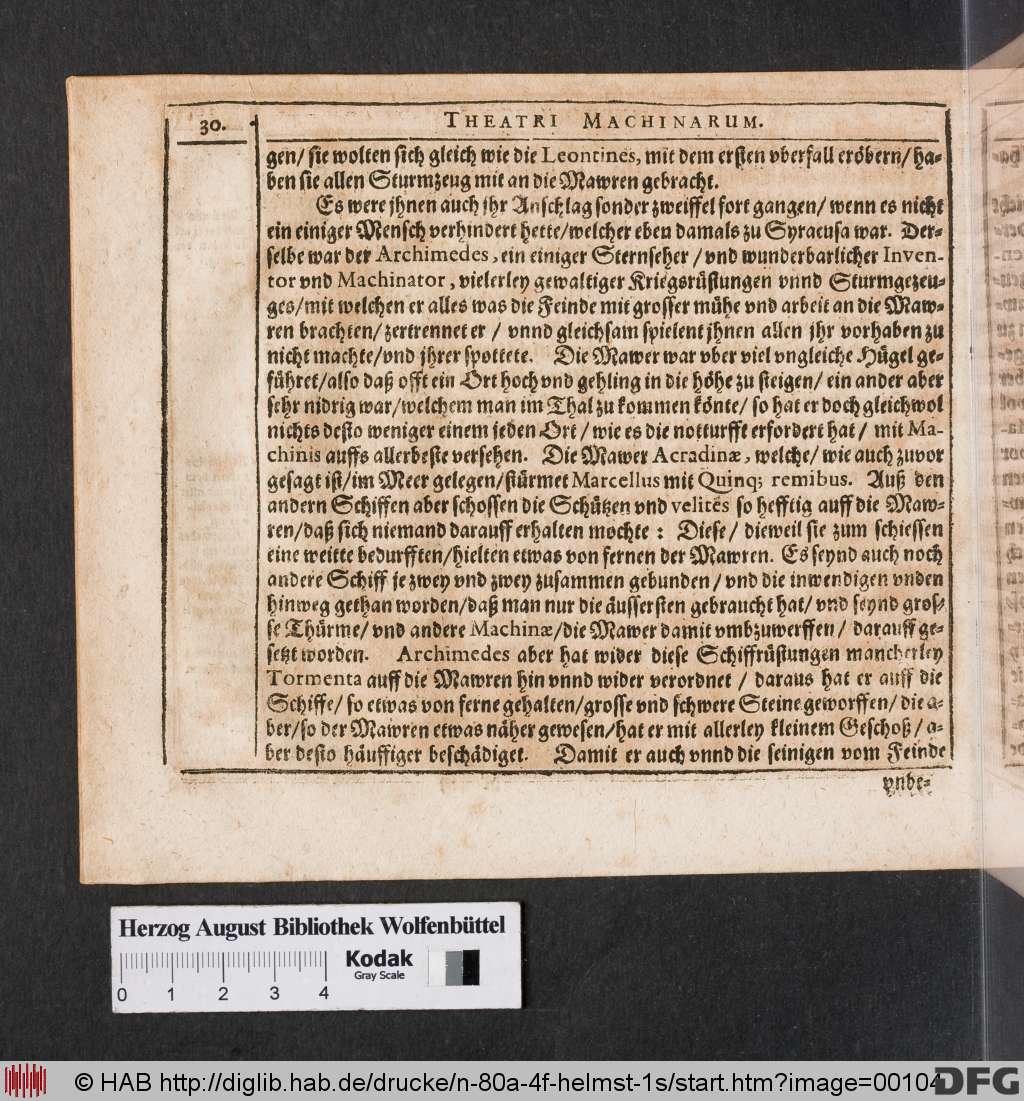 30.
THEATRI MACHINARUM.
gen/ sie wolten sich gleich wie die Leontines, mit dem ersten vberfall eröbern/ ha-
ben sie allen Sturmzeug mit an die Mawren gebracht.
Es were jhnen auch jhr Anschlag sonder zweiffel fort gangen/ wenn es nicht
ein einiger Mensch verhindert hette/welcher eben damals zu Syracusa war. Der-
selbe war der Archimedes, ein einiger Sternseher / vnd wunderbarlicher Inven-
tor vnd Machinator, vielerley gewaltiger Kriegsrüstungen vnnd Sturmgezeu-
ges/mit welchen er alles was die Feinde mit grosser mühe vnd arbeit an die Maw-
ren brachten/ zertrennet er / vnnd gleichsam spielent jhnen allen jhr vorhaben zu
nicht machte/vnd jhrer spottete. Die Mawer war vber viel vngleiche Hügel ge-
führet/also daß offt ein Ort hoch vnd gehling in die höhe zu steigen/ ein ander aber
sehr nidrig war/welchem man im Thal zu kommen könte/ so hat er doch gleichwol
nichts desto weniger einem jeden Ort / wie es die notturfft erfordert hat / mit Ma-
chinis auffs allerbeste versehen. Die Mawer Acradinæ, welche/ wie auch zuvor
gesagt ist/im Meer gelegen/stürmet Marcellus mit Quinq; remibus. Auß den
andern Schiffen aber schossen die Schützen vnd velites so hefftig auff die Maw-
ren/daß sich niemand darauff erhalten mochte : Diese / dieweil sie zum schiessen
eine weitte bedurfften/hielten etwas von fernen der Mawren. Es seynd auch noch
andere Schiff je zwey vnd zwey zusammen gebunden / vnd die inwendigen vnden
hinweg gethan worden/daß man nur die äussersten gebraucht hat/ vnd seynd gros-
se Thürme/ vnd andere Machinæ/die Mawer damit vmbzuwerffen / darauff ge-
setzt worden. Archimedes aber hat wider diese Schiffrüstungen mancherley
Tormenta auff die Mawren hin vnnd wider verordnet / daraus hat er auff die
Schiffe/ so etwas von ferne gehalten/grosse vnd schwere Steine geworffen/ die a-
ber/so der Mawren etwas näher gewesen/hat er mit allerley kleinem Geschoß/ a-
ber desto häuffiger beschädiget. Damit er auch vnnd die seinigen vom Feinde
vnbe-
Herzog August Bibliothek Wolfenbüttel
Kodak
Gray Scale
0 1 2 3 4
© HAB http://diglib.hab.de/drucke/n-80a-4f-helmst-1s/start.htm?image=00104
DFG